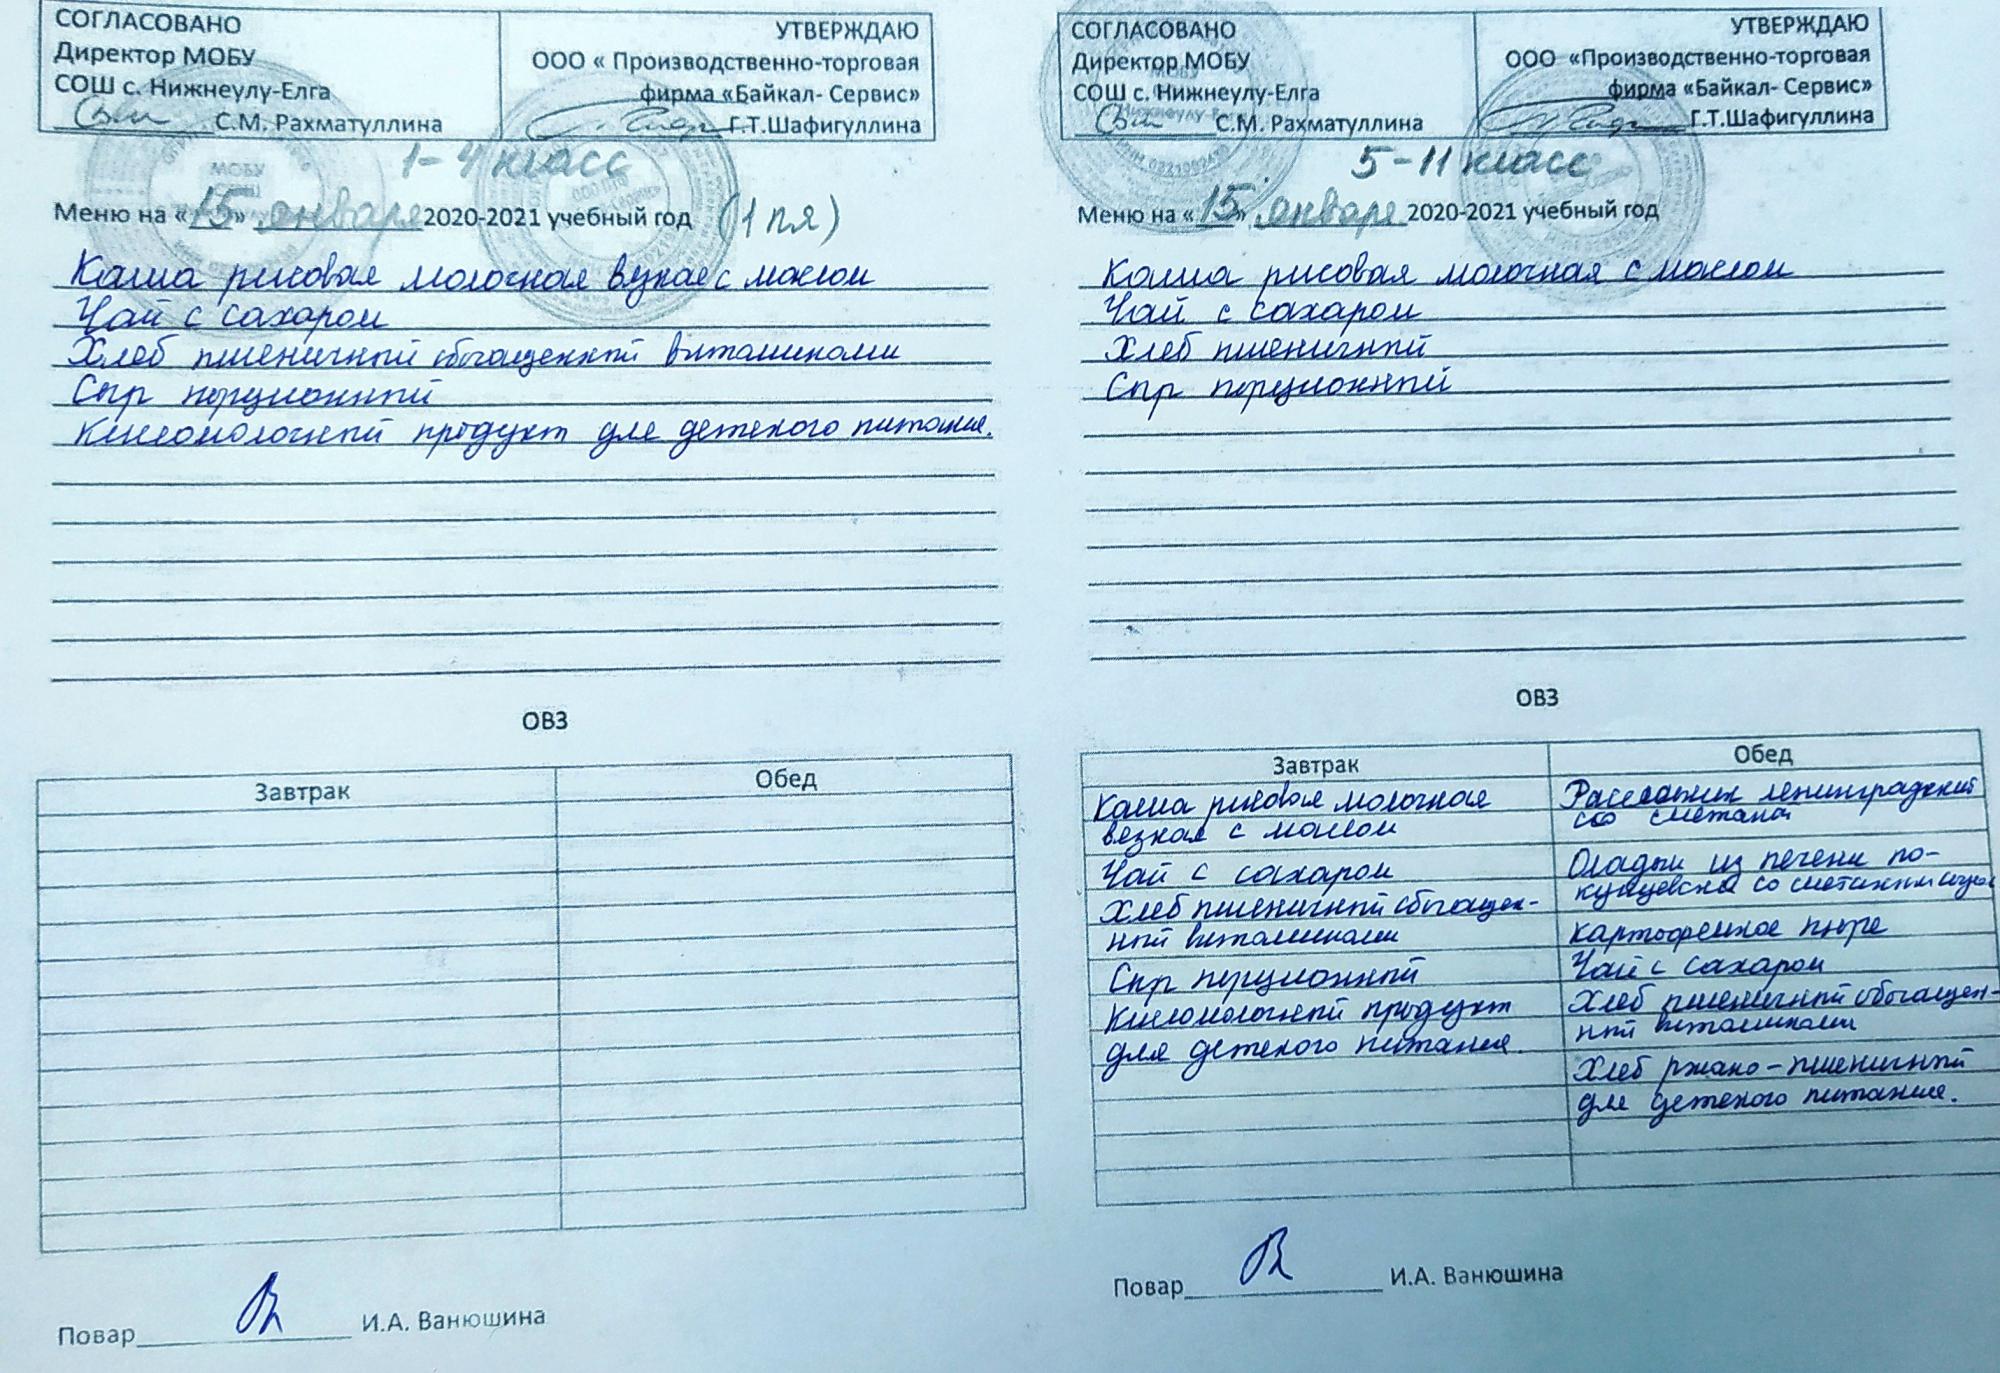 СОГЛАСОВАНО
Директор МОБУ
СОШ с. Нижнеулу-Елга
С.М. Рахматуллина
УТВЕРЖДАЮ
ООО « Производственно-торговая
фирма «Байкал- Сервис»
Г.Т.Шафигуллина
1-4 класс
Меню на «15» января 2020-2021 учебный год (1 пя)
Каша рисовая молочная вязкая с маслом
Чай с сахаром
Хлеб пшеничный обогащенный витаминами
Сыр порционный
Кисломолочный продукт для детского питания.
ОВЗ
Завтрак
Обед
Повар И.А. Ванюшина
СОГЛАСОВАНО
Директор МОБУ
СОШ с. Нижнеулу-Елга
С.М. Рахматуллина
УТВЕРЖДАЮ
ООО «Производственно-торговая
фирма «Байкал- Сервис»
Г.Т.Шафигуллина
5-11 класс
Меню на «15» января 2020-2021 учебный год
Каша рисовая молочная с маслом
Чай с сахаром
Хлеб пшеничный
Сыр порционный
ОВЗ
Завтрак
Каша рисовая молочная
вязкая с маслом
Чай с сахаром
Хлеб пшеничный обогащен-
ный витаминами
Сыр порционный
Кисломолочный продукт
для детского питания.
Обед
Рассольник ленинградский
со сметаной
Оладьи из печени по-
кунцевски со сметанным соусом
картофельное пюре
Чай с сахаром
Хлеб пшеничный обогащен-
ный витаминами
Хлеб ржано-пшеничный
для детского питания.
Повар И.А. Ванюшина